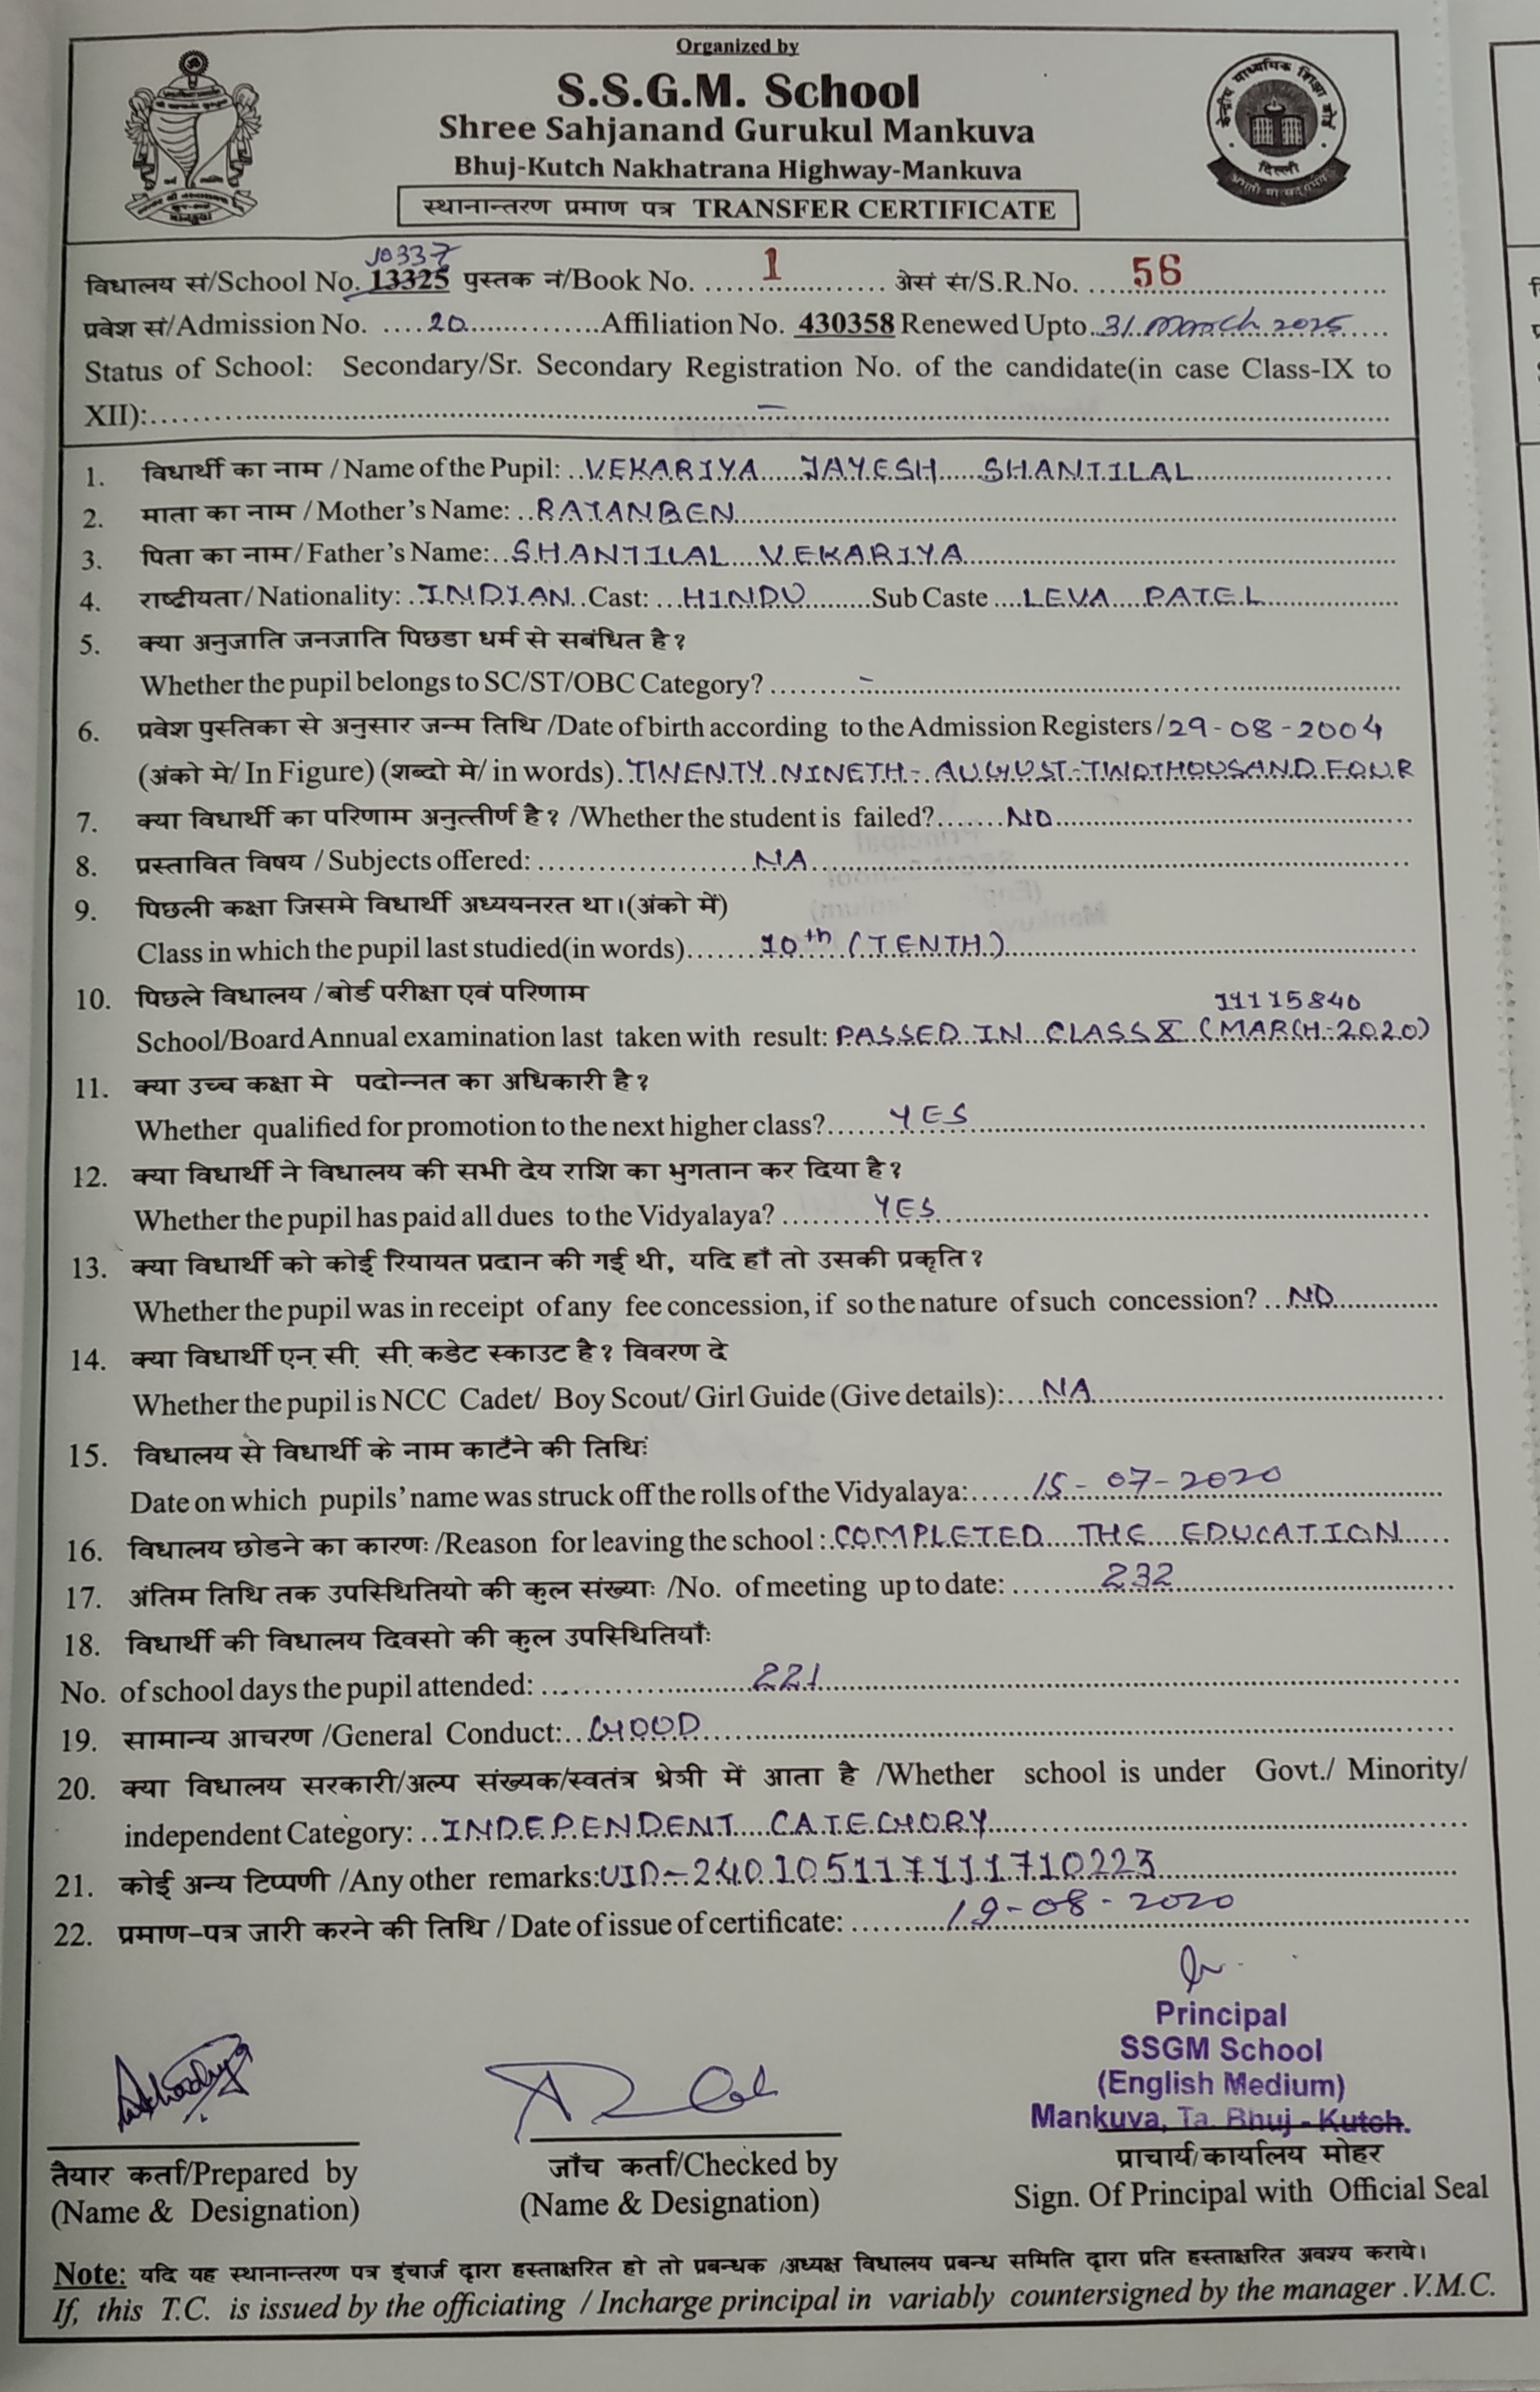 Organized by
S.S.G.M. School
Shree Sahjanand Gurukul Mankuva
Bhuj-Kutch Nakhatrana Highway-Mankuva
स्थानान्तरण प्रमाण पत्र TRANSFER CERTIFICATE
केन्द्रीय माध्यमिक शिक्षा बोर्ड
दिल्ली
10337
विधालय सं/School No. 13325 पुस्तक नं/Book No. 1 अेसं सं/S.R.No. 56
प्रवेश सं/Admission No. 20 Affiliation No. 430358 Renewed Upto 31 March 2025
Status of School: Secondary/Sr. Secondary Registration No. of the candidate(in case Class-IX to
XII): –
1. विधार्थी का नाम /Name of the Pupil: VEKARIYA JAYESH SHANTILAL
2. माता का नाम /Mother's Name: RATANBEN
3. पिता का नाम/Father's Name: SHANTILAL VEKARIYA
4. राष्टीयता/Nationality: INDIAN Cast: HINDU Sub Caste LEVA PATEL
5. क्या अनुजाति जनजाति पिछडा धर्म से सबंधित है?
Whether the pupil belongs to SC/ST/OBC Category? –
6. प्रवेश पुस्तिका से अनुसार जन्म तिथि /Date of birth according to the Admission Registers/29-08-2004
(अंको मे/ In Figure) (शब्दो मे/ in words). TWENTY NINETH - AUGUST - TWOTHOUSAND FOUR
7. क्या विधार्थी का परिणाम अनुत्तीर्ण है? /Whether the student is failed? NO
8. प्रस्तावित विषय /Subjects offered: NA
9. पिछली कक्षा जिसमे विधार्थी अध्ययनरत था।(अंको में)
Class in which the pupil last studied(in words) 10th (TENTH)
10. पिछले विधालय /बोर्ड परीक्षा एवं परिणाम
11115840
School/Board Annual examination last taken with result: PASSED IN CLASS X (MARCH-2020)
11. क्या उच्च कक्षा मे पदोन्नत का अधिकारी है?
Whether qualified for promotion to the next higher class? YES
12. क्या विधार्थी ने विधालय की सभी देय राशि का भुगतान कर दिया है?
Whether the pupil has paid all dues to the Vidyalaya? YES
13. क्या विधार्थी को कोई रियायत प्रदान की गई थी, यदि हाँ तो उसकी प्रकृति?
Whether the pupil was in receipt of any fee concession, if so the nature of such concession? NO
14. क्या विधार्थी एन. सी. सी. कडेट स्काउट है? विवरण दे
Whether the pupil is NCC Cadet/ Boy Scout/ Girl Guide (Give details): NA
15. विधालय से विधार्थी के नाम काटँने की तिथिः
Date on which pupils' name was struck off the rolls of the Vidyalaya: 15-07-2020
16. विधालय छोडने का कारणः /Reason for leaving the school: COMPLETED THE EDUCATION
17. अंतिम तिथि तक उपस्थितियो की कुल संख्याः /No. of meeting up to date: 232
18. विधार्थी की विधालय दिवसो की कुल उपस्थितियाँः
No. of school days the pupil attended: 221
19. सामान्य आचरण /General Conduct: GOOD
20. क्या विधालय सरकारी/अल्प संख्यक/स्वतंत्र श्रेञी में आता है /Whether school is under Govt./ Minority/
independent Category: INDEPENDENT CATEGORY
21. कोई अन्य टिप्पणी /Any other remarks: UID-240105117111710223
22. प्रमाण-पत्र जारी करने की तिथि /Date of issue of certificate: 19-08-2020
Principal
SSGM School
(English Medium)
Mankuva, Ta. Bhuj - Kutch.
तैयार कर्ता/Prepared by
(Name & Designation)
जाँच कर्ता/Checked by
(Name & Designation)
प्राचार्य/कार्यालय मोहर
Sign. Of Principal with Official Seal
Note: यदि यह स्थानान्तरण पत्र इंचार्ज द्वारा हस्ताक्षरित हो तो प्रबन्धक /अध्यक्ष विधालय प्रबन्ध समिति द्वारा प्रति हस्ताक्षरित अवश्य कराये।
If, this T.C. is issued by the officiating / Incharge principal in variably countersigned by the manager .V.M.C.